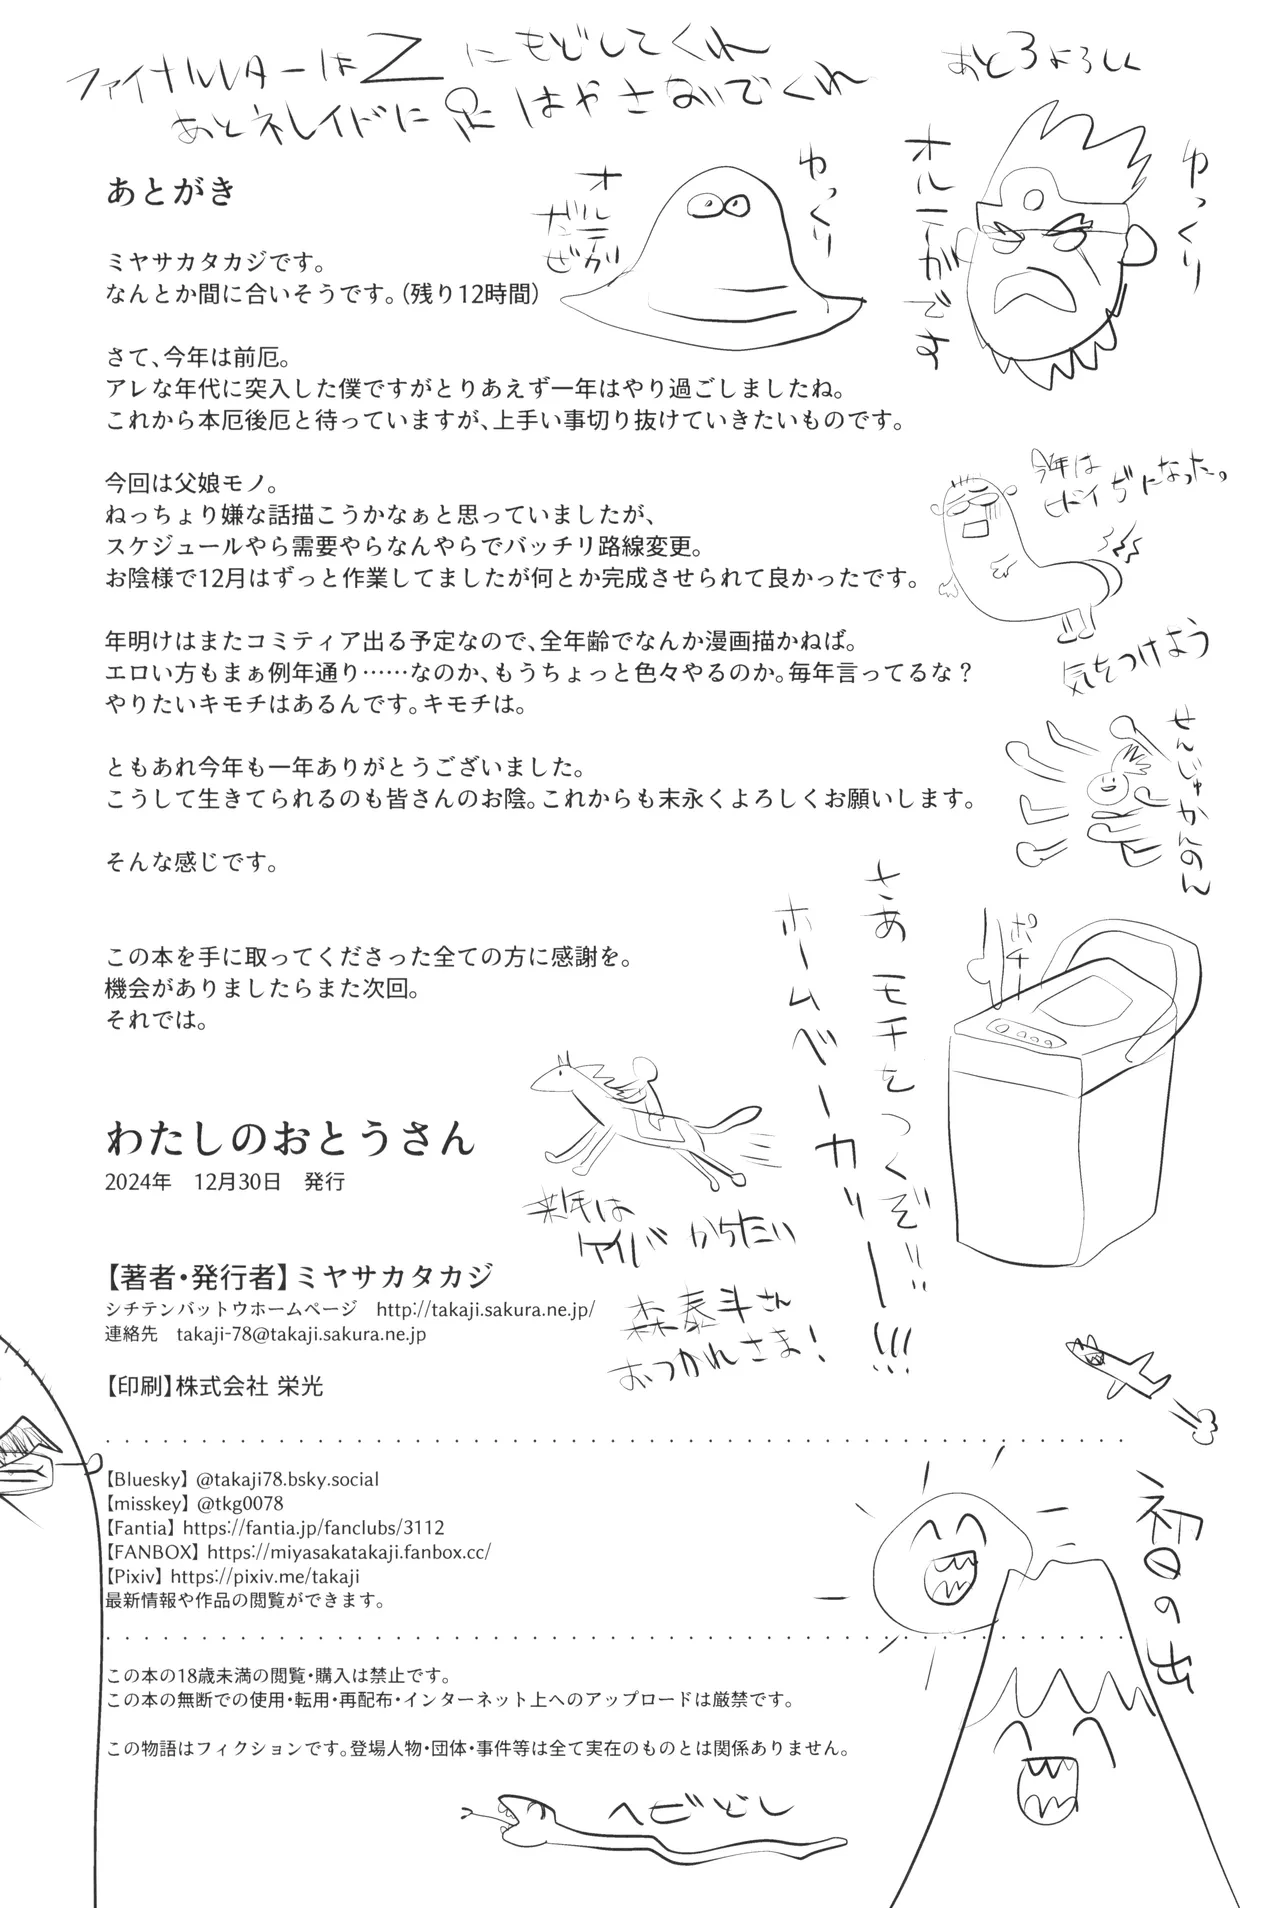 ファイナルレターはZにもどしてくれ
あとネレイドに足はやさないでくれ
あと3よろしく
ゆっくり
オルテガだぜ
ゆっくり
オルテガです
あとがき
ミヤサカタカジです。
なんとか間に合いそうです。（残り12時間）
さて、今年は前厄。
アレな年代に突入した僕ですがとりあえず一年はやり過ごしましたね。
これから本厄後厄と待っていますが、上手い事切り抜けていきたいものです。
今回は父娘モノ。
ねっちょり嫌な話描こうかなぁと思っていましたが、
スケジュールやら需要やらなんやらでバッチリ路線変更。
お陰様で12月はずっと作業してましたが何とか完成させられて良かったです。
今年は
ヒドイぢになった。
気をつけよう
年明けはまたコミティア出る予定なので、全年齢でなんか漫画描かねば。
エロい方もまぁ例年通り……なのか、もうちょっと色々やるのか。毎年言ってるな？
やりたいキモチはあるんです。キモチは。
せんじゅかんのん
ともあれ今年も一年ありがとうございました。
こうして生きてられるのも皆さんのお陰。これからも末永くよろしくお願いします。
そんな感じです。
さあ モチをつくぞ!!!
ホームベーカリー!!!
ポチー
この本を手に取ってくださった全ての方に感謝を。
機会がありましたらまた次回。
それでは。
わたしのおとうさん
2024年　12月30日　発行
来年は
ケイバ からたい
森泰斗さん
おつかれさま！
【著者・発行者】ミヤサカタカジ
シチテンバットウホームページ　http://takaji.sakura.ne.jp/
連絡先　takaji-78@takaji.sakura.ne.jp
【印刷】株式会社 栄光
【Bluesky】@takaji78.bsky.social
【misskey】@tkg0078
【Fantia】https://fantia.jp/fanclubs/3112
【FANBOX】https://miyasakatakaji.fanbox.cc/
【Pixiv】https://pixiv.me/takaji
最新情報や作品の閲覧ができます。
初日の出
この本の18歳未満の閲覧・購入は禁止です。
この本の無断での使用・転用・再配布・インターネット上へのアップロードは厳禁です。
この物語はフィクションです。登場人物・団体・事件等は全て実在のものとは関係ありません。
ヘビどし